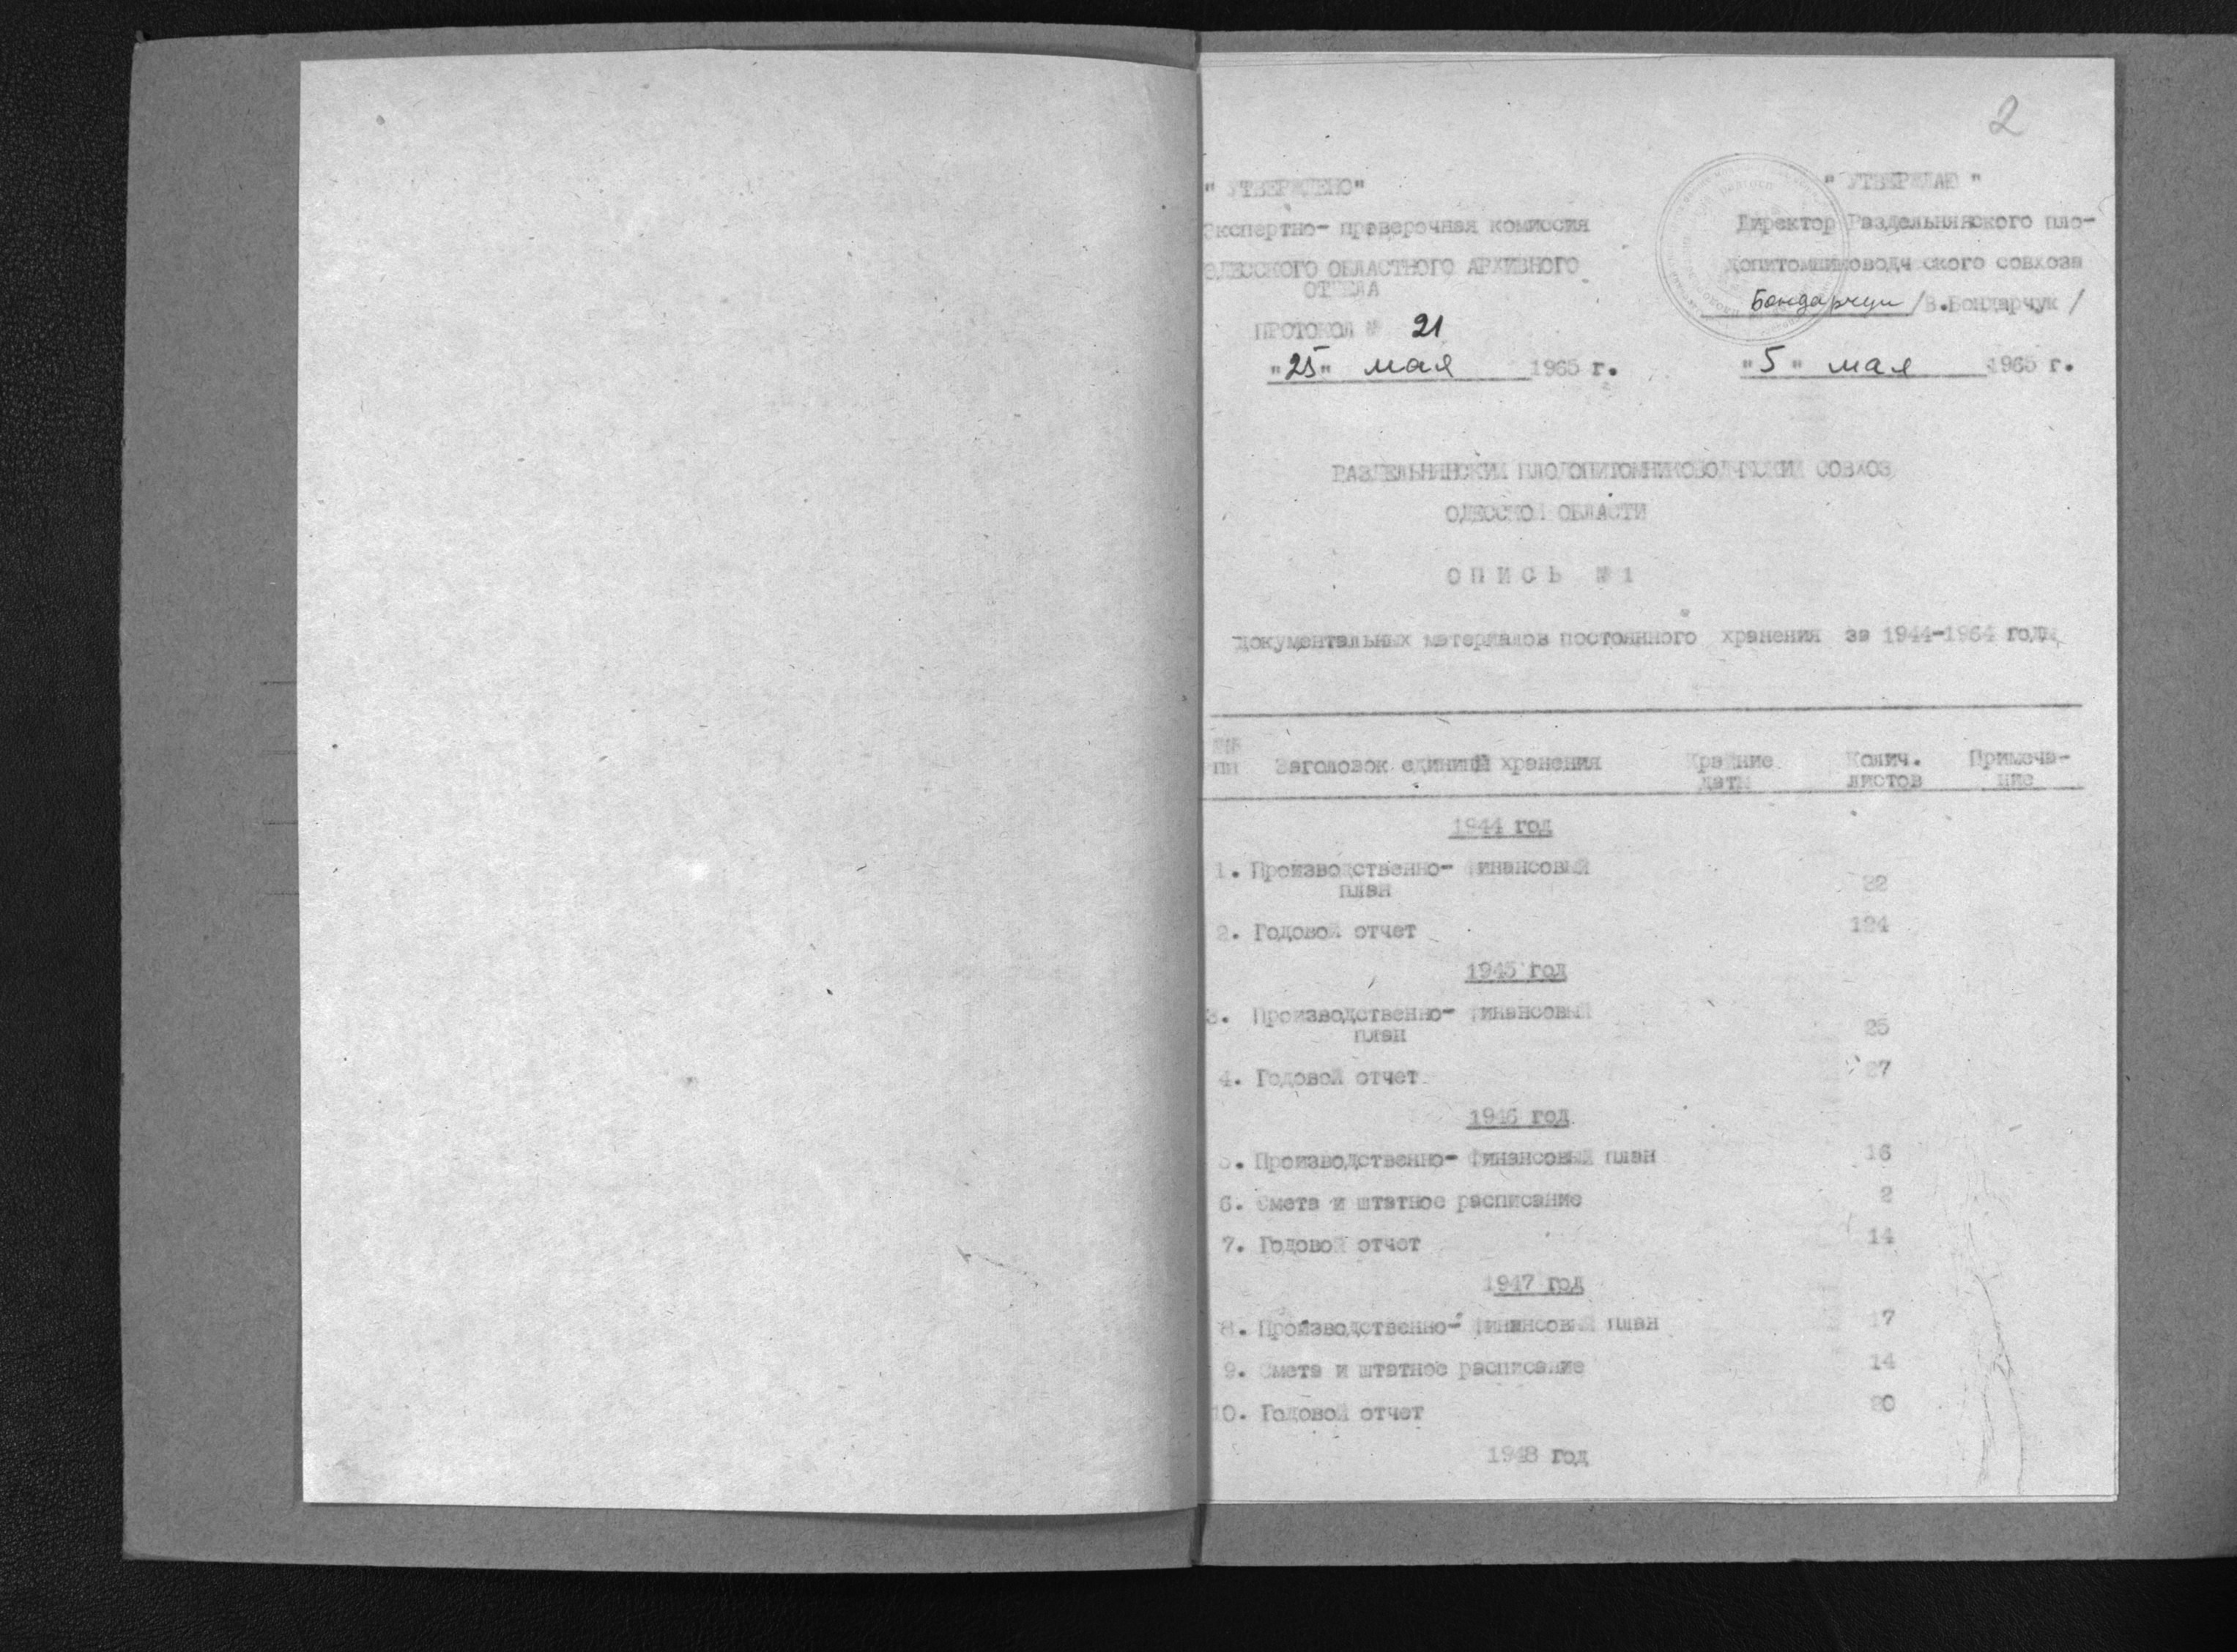 2
" УТВЕРЖДЕНО"
Экспертно- проверочная комиссия
ОДЕССКОГО ОБЛАСТНОГО АРХИВНОГО
ОТДЕЛА
ПРОТОКОЛ № 21
"25" мая 1965 г.
" УТВЕРЖДАЮ "
Директор Раздельнянского пло-
допитомниководческого совхоза
Бондарчук /В.Бондарчук /
"5" мая 1965 г.
РАЗДЕЛЬНЯНСКИЙ ПЛОДОПИТОМНИКОВОДЧЕСКИЙ СОВХОЗ
ОДЕССКОЙ ОБЛАСТИ
О П И С Ь № 1
документальных материалов постоянного хранения за 1944-1964 годы
№№ пп Заголовок единицы хранения Крайние даты Колич. листов Примеча- ние
1944 год
1. Производственно- финансовый
план 22
2. Годовой отчет 124
1945 год
3. Производственно- финансовый
план 25
4. Годовой отчет 27
1946 год
5. Производственно- финансовый план 16
6. Смета и штатное расписание 2
7. Годовой отчет 14
1947 год
8. Производственно- финансовый план 17
9. Смета и штатное расписание 14
10. Годовой отчет 20
1948 год